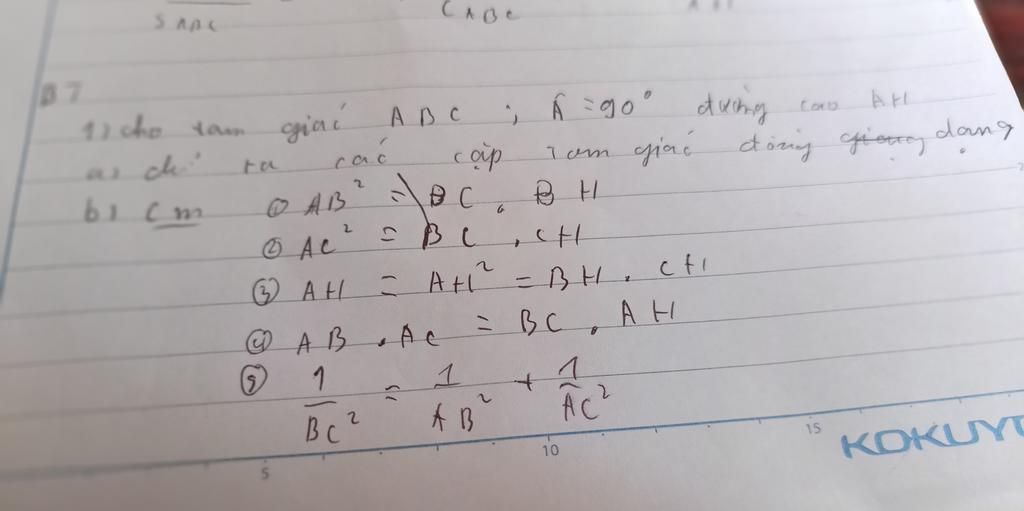 S ABC C ABC
B7
1) cho tam giác ABC ; Â = 90° đường cao AH
a, chỉ ra các cặp tam giác đồng dạng
b) cm ① AB² = BC . BH
② AC² = BC . CH
③ AH = AH² = BH . CH
④ AB . AC = BC . AH
⑤ 1/BC² = 1/AB² + 1/AC²
5 10 15 KOKUY